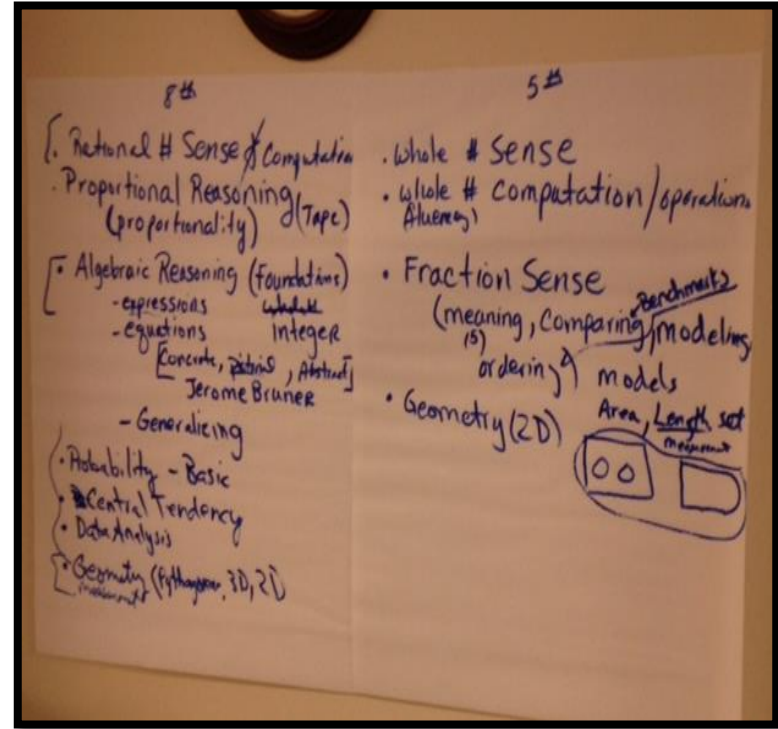 8th
. Rational # Sense & Computation
. Proportional Reasoning
(proportionality) (Tape)
. Algebraic Reasoning (foundations)
- expressions
- equations Integer
[Concrete, pictorial, Abstract]
Jerome Bruner
- Generalizing
. Probability - Basic
. Central Tendency
. Data Analysis
. Geometry (Pythagorean, 3D, 2D
measurement
5th
. Whole # Sense
. whole # computation/operations
fluency
. Fraction Sense
Benchmarks
(meaning, comparing, modeling
(5)
ordering) models
Area, Length, set
measurement
. Geometry (2D)